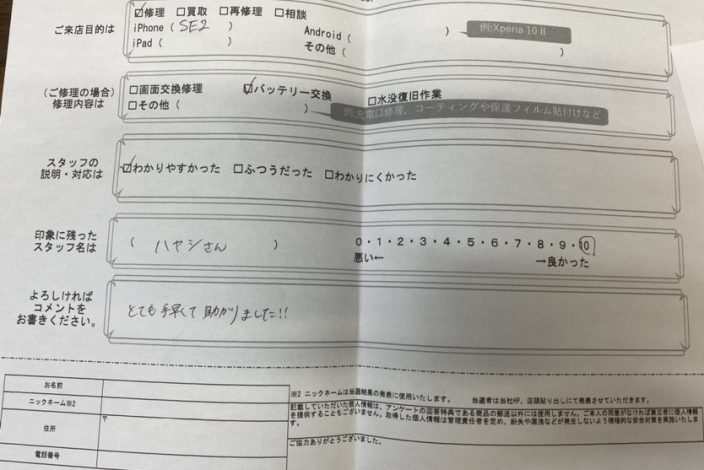 ご来店目的は
☑修理 □買取 □再修理 □相談
iPhone ( SE2 ) Android ( ) 例:Xperia 10 II
iPad ( ) その他 ( )
(ご修理の場合)
修理内容は
□画面交換修理 ☑バッテリー交換 □水没復旧作業
□その他 ( ) 例:充電口修理、コーティングや保護フィルム貼付けなど
スタッフの
説明・対応は
☑わかりやすかった □ふつうだった □わかりにくかった
印象に残った
スタッフ名は
( ハヤシさん )
0・1・2・3・4・5・6・7・8・9・10
悪い← →良かった
よろしければ
コメントを
お書きください。
とても手早くて助かりました!!
お名前
ニックネーム※2
住所
〒
電話番号
※2 ニックネームは当選結果の発表に使用いたします。 当選者は当社HP、店頭貼り出しにて発表させていただきます。
記載していただいた個人情報は、アンケートの回答特典である商品の郵送以外には使用しません。ご本人の同意がなければ第三者に個人情報
を提供することもございません。取得した個人情報は管理責任者を定め、紛失や漏洩などが発生しないよう積極的な安全対策を実施いたしま
す。
ご協力ありがとうございました。